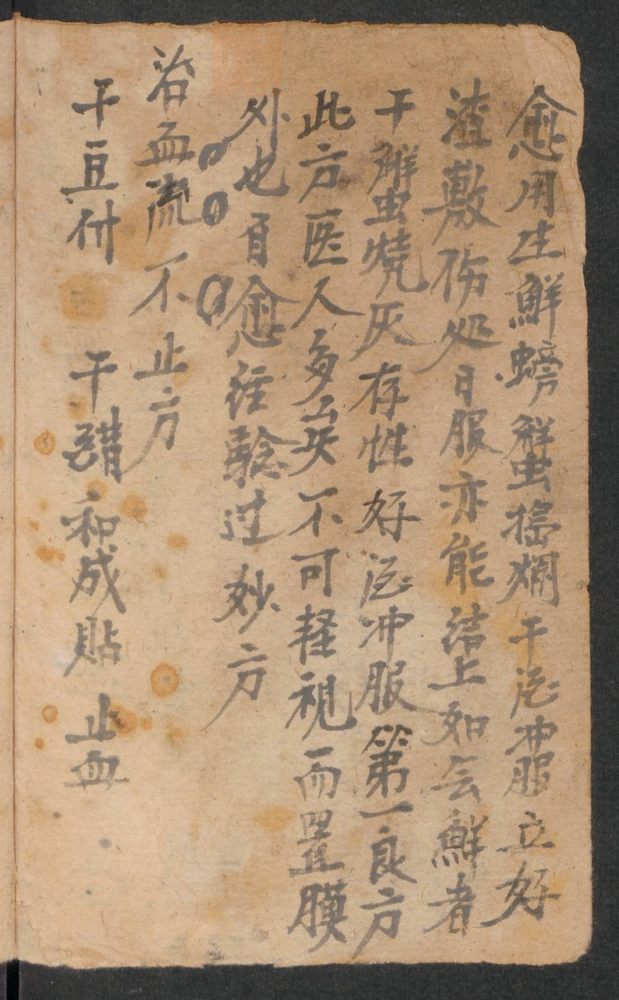 愈用生鮮螃蟹搗爛干沱冲服立好
渣敷伤処日服亦能結上如会鮮者
干蟹燒灰存性好沱冲服第一良方
此方医人多五矢不可軽視而置膜
外也百愈经驗过妙方
治血流不止方
干豆付 干醋和成貼止血